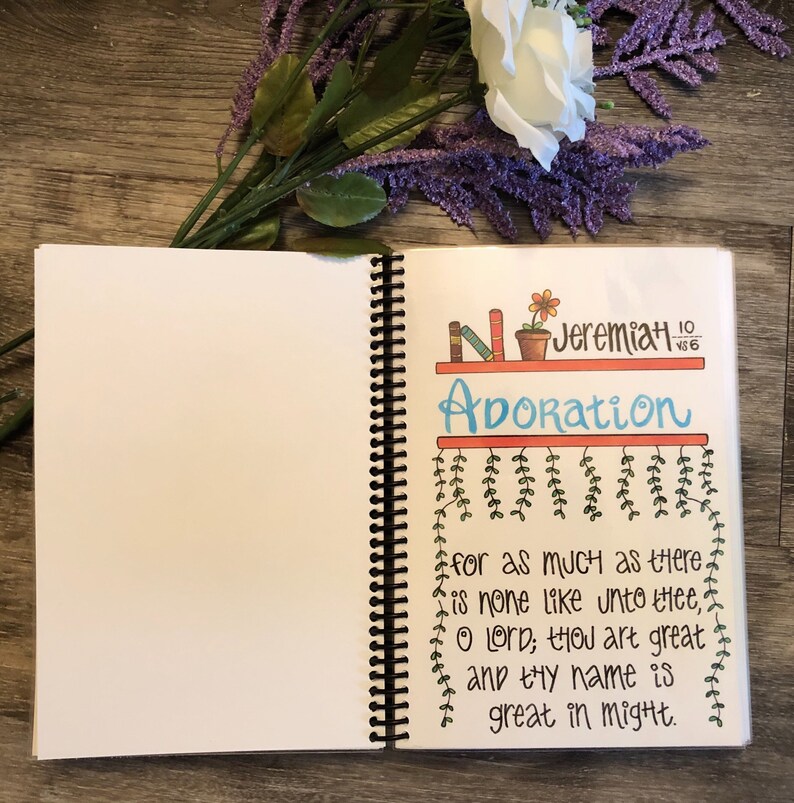 Jeremiah 10 vs 6
Adoration
for as much as there
is none like unto thee,
O Lord; thou art great
and thy name is
great in might.